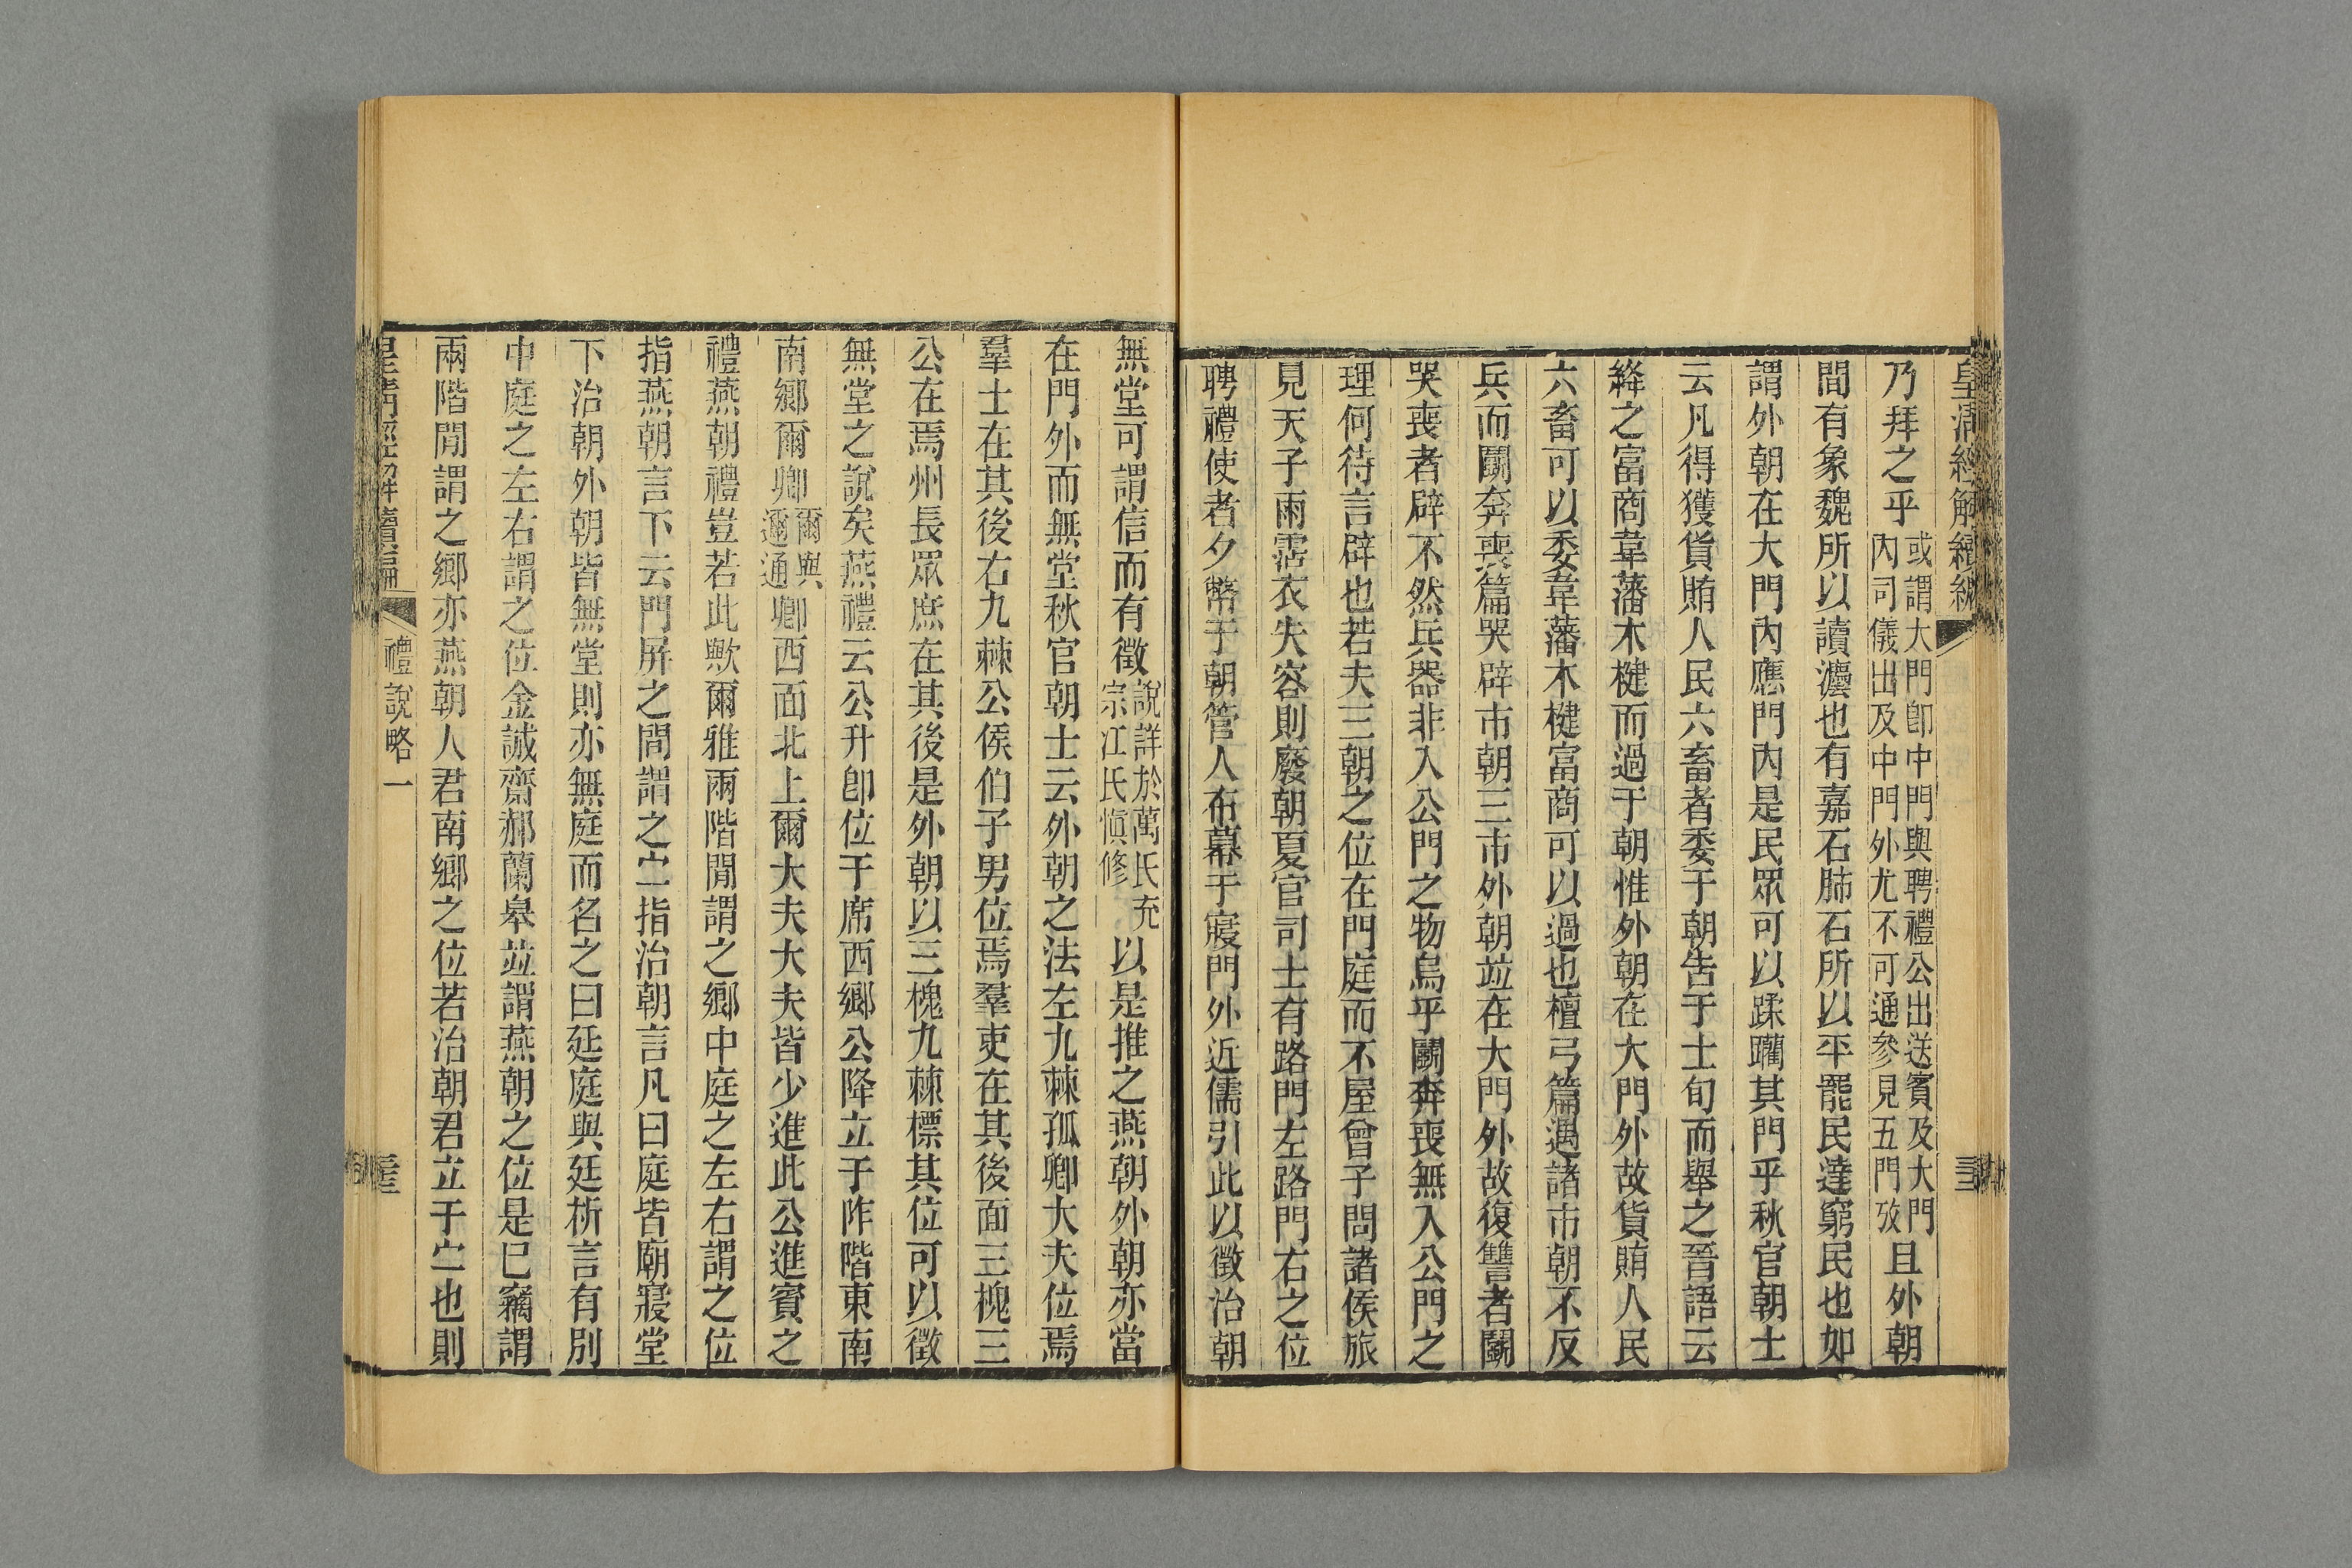 皇清經解續編
乃拜之乎或謂大門卽中門與聘禮公出送賓及大門內司儀出及中門外尤不可通參見五門攷且外朝
間有象魏所以讀灋也有嘉石肺石所以平罷民達窮民也如
謂外朝在大門內應門內是民眾可以蹂躪其門乎秋官朝士
云凡得獲貨賄人民六畜者委于朝告于士旬而舉之晉語云
絳之富商韋藩木楗而過于朝惟外朝在大門外故貨賄人民
六畜可以委韋藩木楗富商可以過也檀弓篇遇諸市朝不反
兵而鬭奔喪篇哭辟市朝三市外朝竝在大門外故復讐者鬭
哭喪者辟不然兵器非入公門之物烏乎鬭奔喪無入公門之
理何待言辟也若夫三朝之位在門庭而不屋曾子問諸侯旅
見天子雨霑衣失容則廢朝夏官司士有路門左路門右之位
聘禮使者夕幣于朝管人布幕于寢門外近儒引此以徵治朝
無堂可謂信而有徵說詳於萬氏充宗江氏愼修以是推之燕朝外朝亦當
在門外而無堂秋官朝士云外朝之法左九棘孤卿大夫位焉
羣士在其後右九棘公侯伯子男位焉羣吏在其後面三槐三
公在焉州長眾庶在其後是外朝以三槐九棘標其位可以徵
無堂之說矣燕禮云公升卽位于席西鄉公降立于阼階東南
南鄉爾卿爾與邇通卿西面北上爾大夫大夫皆少進此公進賓之
禮燕朝禮豈若此歟爾雅兩階間謂之鄉中庭之左右謂之位
指燕朝言下云門屏之間謂之宁指治朝言凡曰庭皆廟寢堂
下治朝外朝皆無堂則亦無庭而名之曰廷庭與廷析言有別
中庭之左右謂之位金誠齋郝蘭皋竝謂燕朝之位是已竊謂
兩階間謂之鄉亦燕朝人君南鄉之位若治朝君立于宁也則
禮說略一